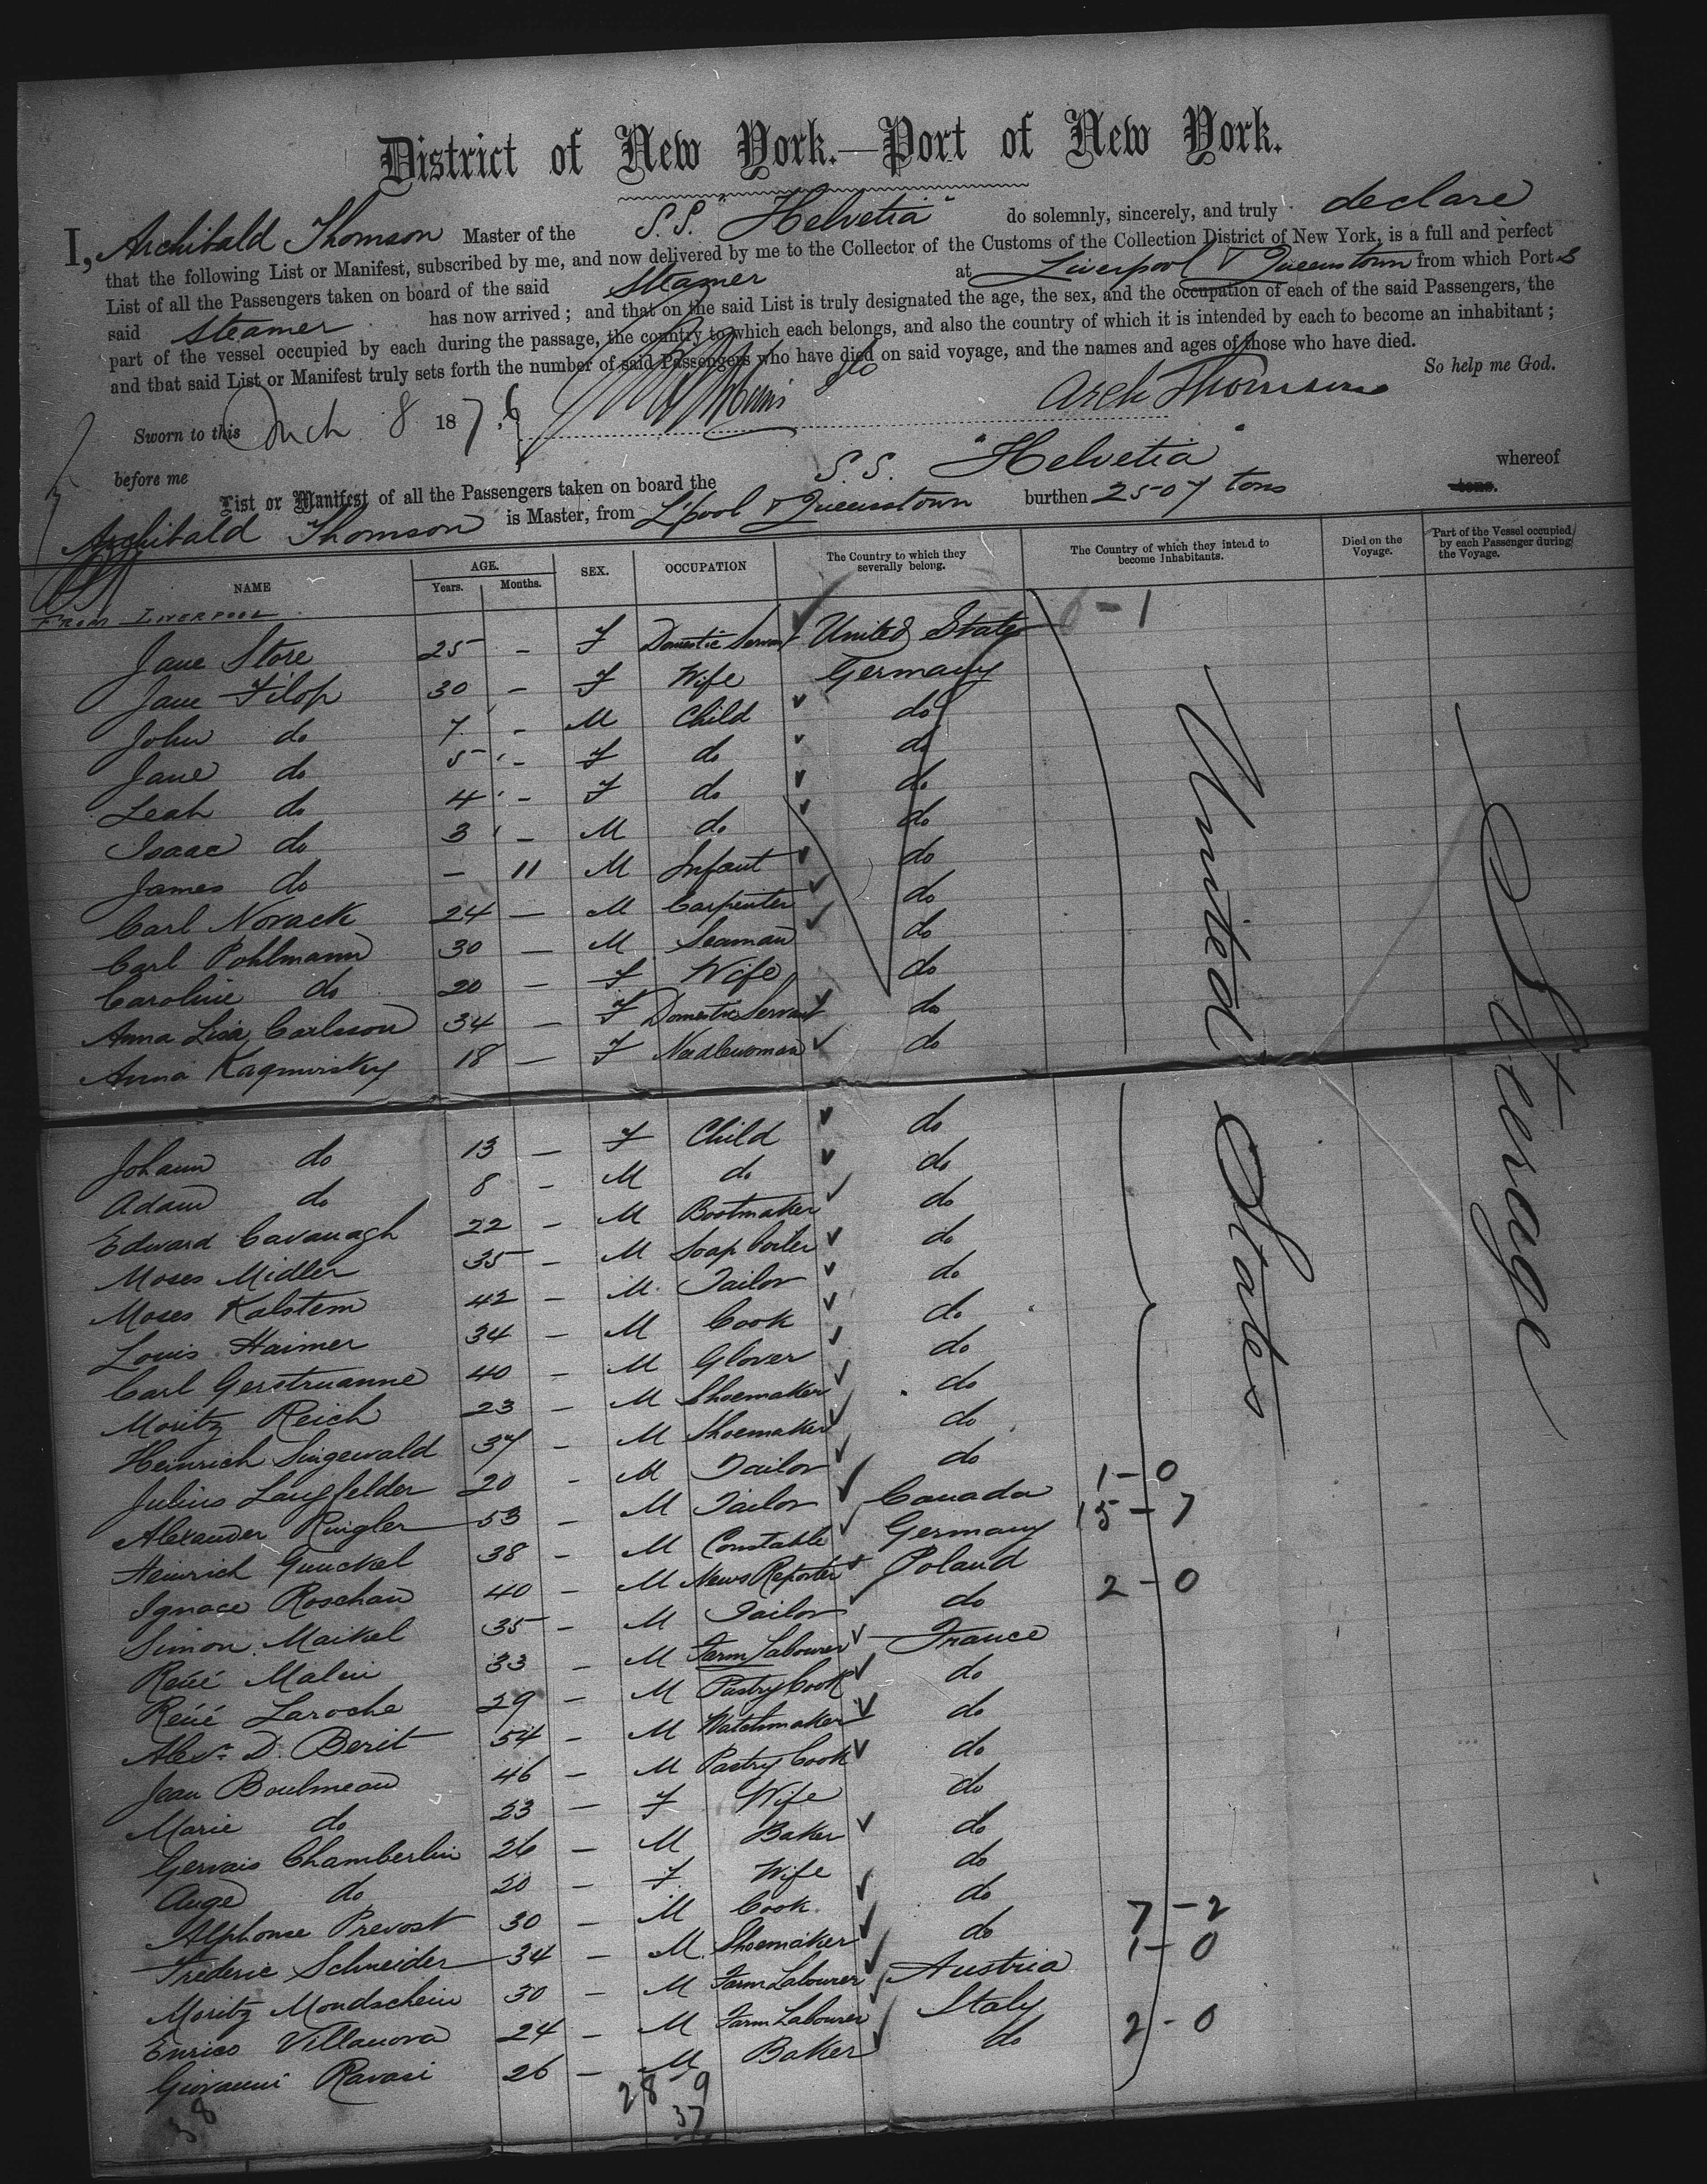 District of New York.—Port of New York.
I, Archibald Thomson Master of the S.S. "Helvetia" do solemnly, sincerely, and truly declare
that the following List or Manifest, subscribed by me, and now delivered by me to the Collector of the Customs of the Collection District of New York, is a full and perfect
List of all the Passengers taken on board of the said Steamer at Liverpool & Queenstown from which Port s
said Steamer has now arrived; and that on the said List is truly designated the age, the sex, and the occupation of each of the said Passengers, the
part of the vessel occupied by each during the passage, the country to which each belongs, and also the country of which it is intended by each to become an inhabitant;
and that said List or Manifest truly sets forth the number of said Passengers who have died on said voyage, and the names and ages of those who have died.
So help me God.
Sworn to this Mch 8 1876 Arch Thomson
before me
List or Manifest of all the Passengers taken on board the S.S. "Helvetia" whereof
Archibald Thomson is Master, from L'pool & Queenstown burthen 2507 tons tons.
NAME AGE. Years. Months. SEX. OCCUPATION The Country to which they severally belong. The Country of which they intend to become Inhabitants. Died on the Voyage. Part of the Vessel occupied by each Passenger during the Voyage.
FROM LIVERPOOL
Jane Store 25 - F Domestic Servant United States 0-1
Jane Filop 30 - F Wife Germany
John do 7 - M Child do
Jane do 5 - F do do
Leah do 4 - F do do
Isaac do 3 - M do do
James do - 11 M Infant do
Carl Novack 24 - M Carpenter do
Carl Pohlmann 30 - M Seaman do
Caroline do 20 - F Wife do
Anna Lisa Carlsson 34 - F Domestic Servant do
Anna Kaqmirsky 18 - F Needlewoman do
Johann do 13 - F Child do
Adam do 8 - M do do
Edward Cavanagh 22 - M Bootmaker do
Moses Midler 35 - M Soap boiler do
Moses Kalstem 42 - M. Tailor do
Louis Haimer 34 - M Cook do
Carl Gerstruanne 40 - M Glover do
Moritz Reich 23 - M Shoemaker do
Heinrich Singewald 37 - M Shoemaker do
Julius Langfelder 20 - M Tailor do
Alexander Ringler 53 - M Tailor Canada 1-0
Heinrich Gunckel 38 - M Constable Germany 15-7
Ignace Roschan 40 - M News Reporter Poland
Simon Maikel 35 - M Tailor do 2-0
Réné Malin 33 - M Farm Labourer France
Réné Laroche 29 - M Pastry Cook do
Alexr. D. Berit 54 - M Watchmaker do
Jean Boulmeau 46 - M Pastry Cook do
Marie do 23 - F Wife do
Gervais Chamberlin 26 - M Baker do
Ange do 20 - F Wife do
Alphonse Prevost 30 - M Cook do
Frederic Schneider 34 - M Shoemaker do 7-2
Moritz Mondschein 30 - M Farm Labourer Austria 1-0
Enrico Villanova 24 - M Farm Labourer Italy
Giovanni Ravasi 26 - M Baker do 2-0
United States
Steerage
28 9
37
38